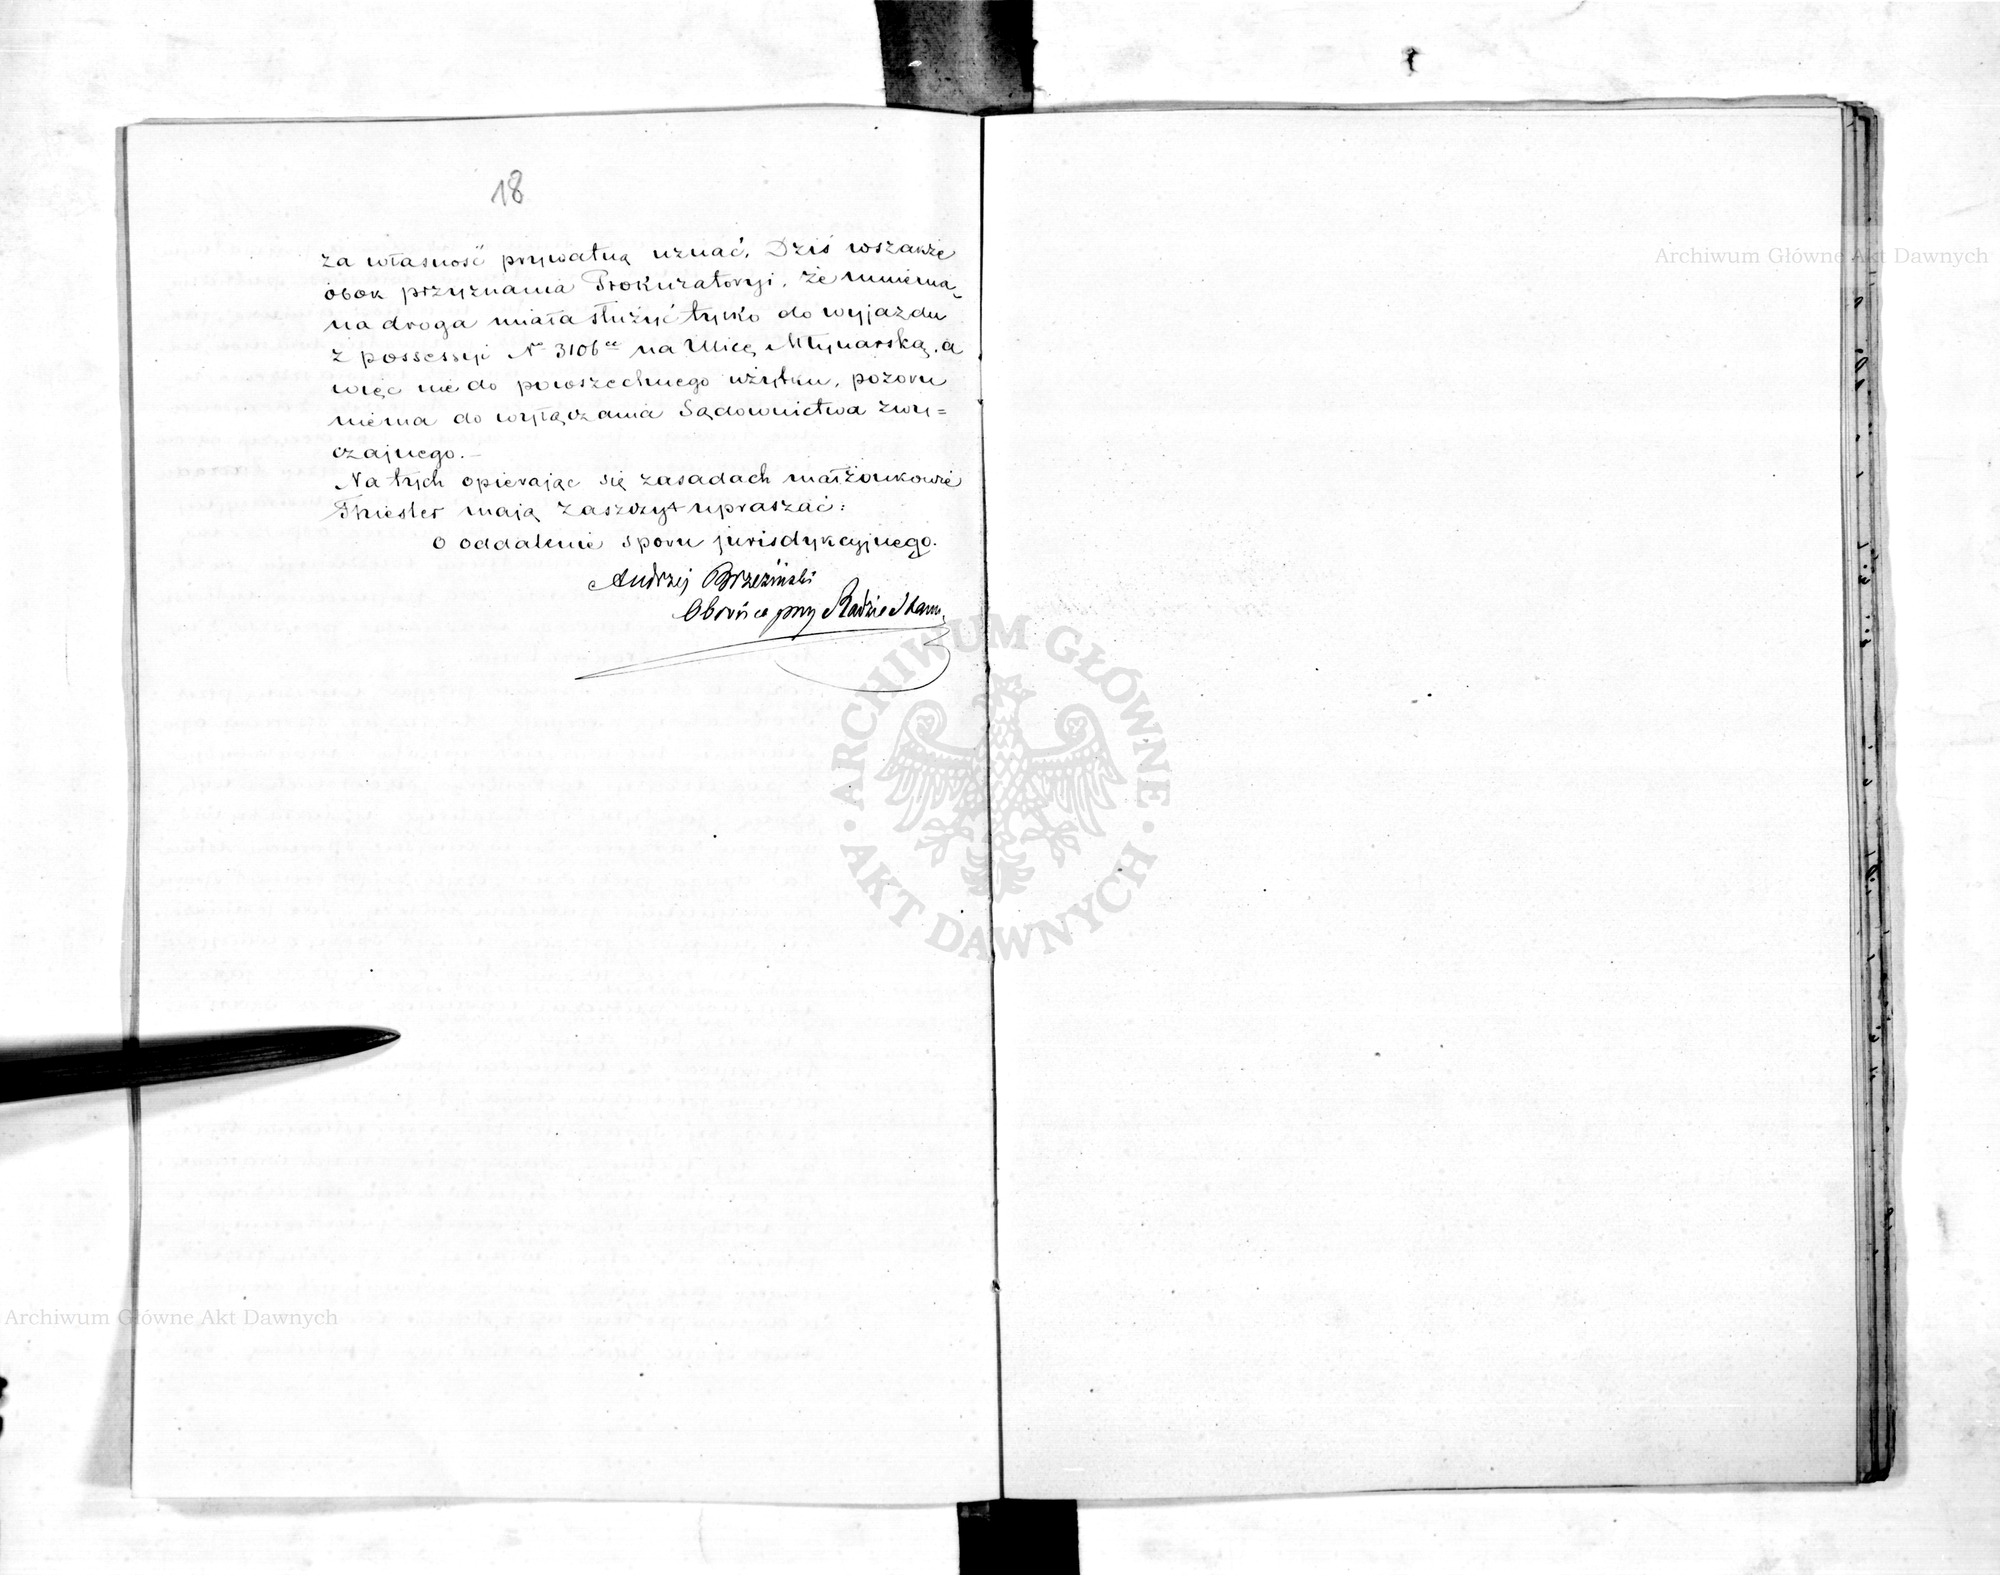 18
za własność prywatną uznać. Dziś wszakże
obok przyznania Prokuratoryi, że mniema-
na droga miała służyć tylko do wyjazdu
z possessyi No 3106 na Ulicę Młynarską, a
więc nie do powszechnego użytku, pozoru
niema do wyłączania Sądownictwa zwy=
czajnego.—
Na tych opierając się zasadach małżonkowie
Thiester mają zaszczyt upraszać:
O oddalenie sporu jurisdykcyjnego.
Andrzej Brzeziński
Obrońca przy Radzie Stanu
Archiwum Główne Akt Dawnych
ARCHIWUM GŁÓWNE AKT DAWNYCH
Archiwum Główne Akt Dawnych